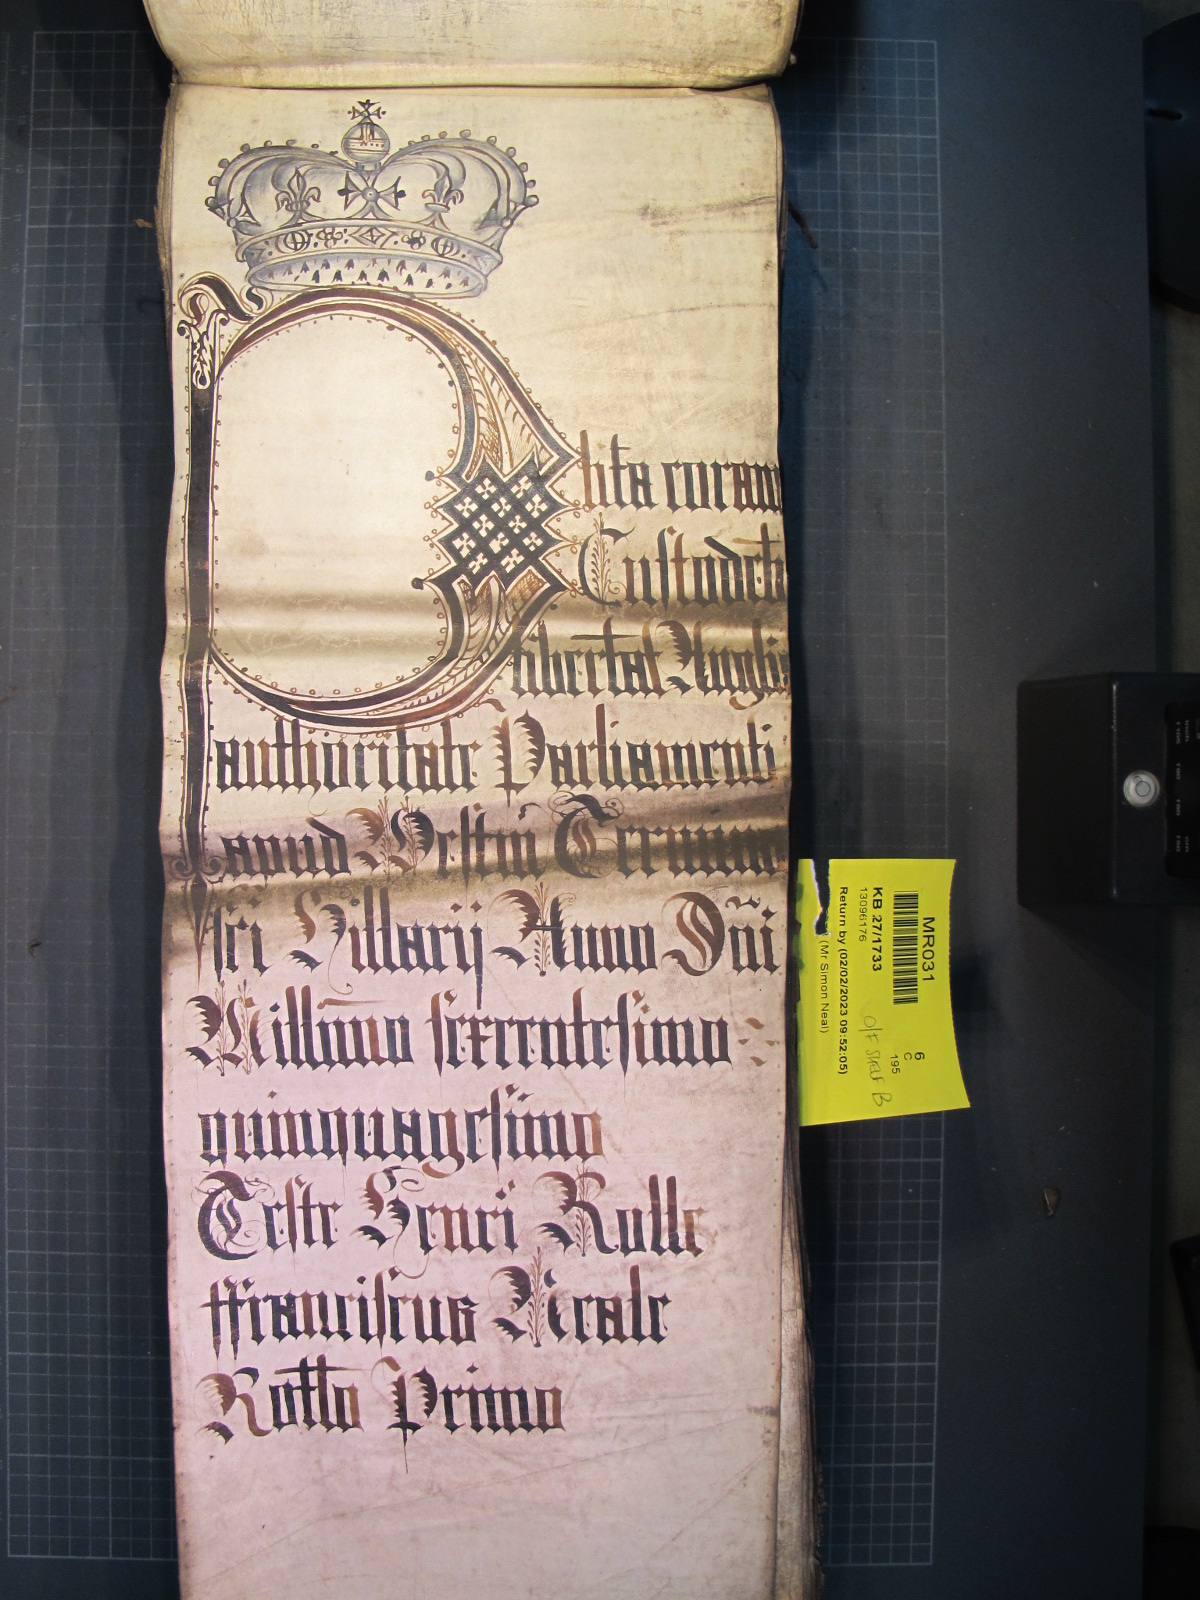 Plita coram
Custodeb
libertat Anglie
authoritate Parliamenti
apud Westm̃ Termino
sci Hillarij Anno Dñi
Millimo sexcentesimo
quinquagesimo
Teste Henri Rolle
ffranciscus Neale
Rotlo Primo
MR031
KB 27/1733
13096176
Return by (02/02/2023 09:52:05)
(Mr Simon Neal)
6
C
195
O/F Shelf B